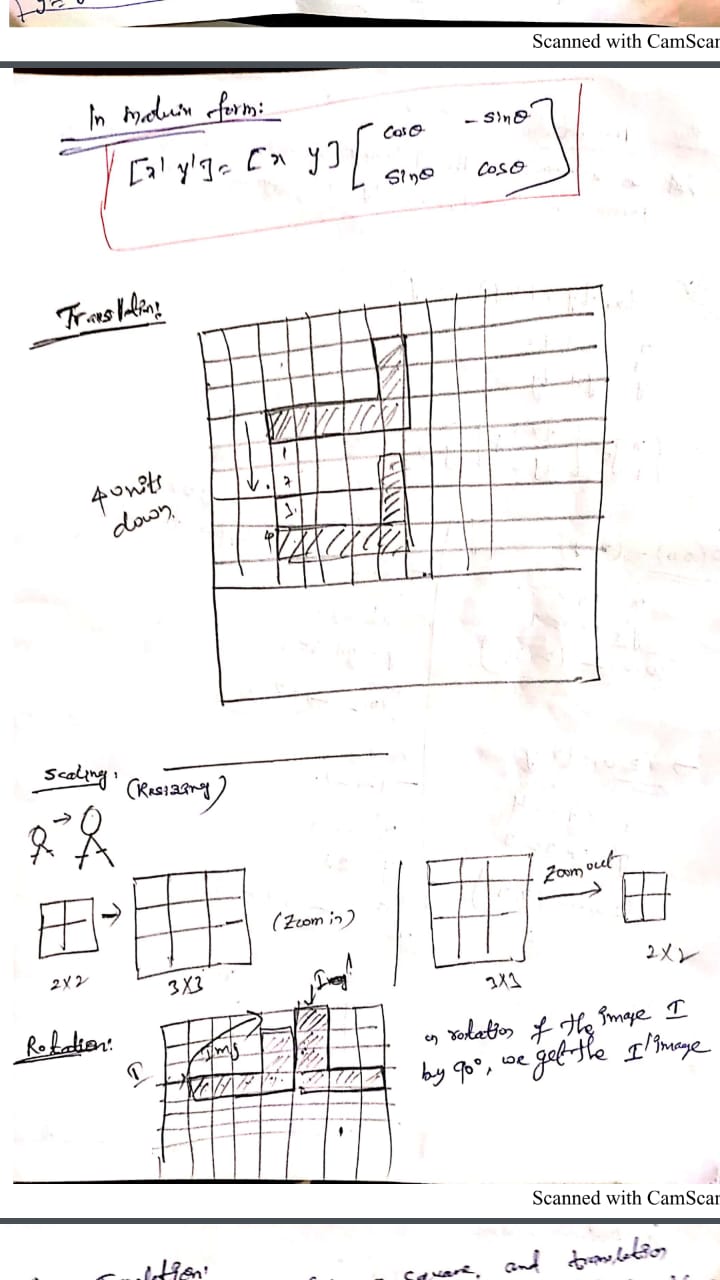 Scanned with CamScan
In matrix form:
[x' y'] = [x y] [ cosθ - sinθ
sinθ cosθ ]
Translation:
4 units
down.
1
2
3.
4
Scaling: (Resizing)
Zoom out
(Zoom in)
2X2
3X3
3X3
2X2
Img I'
Rotation:
I
Img
on rotation of the image I
by 90°, we get the I' image
Scanned with CamScan
square, and translation